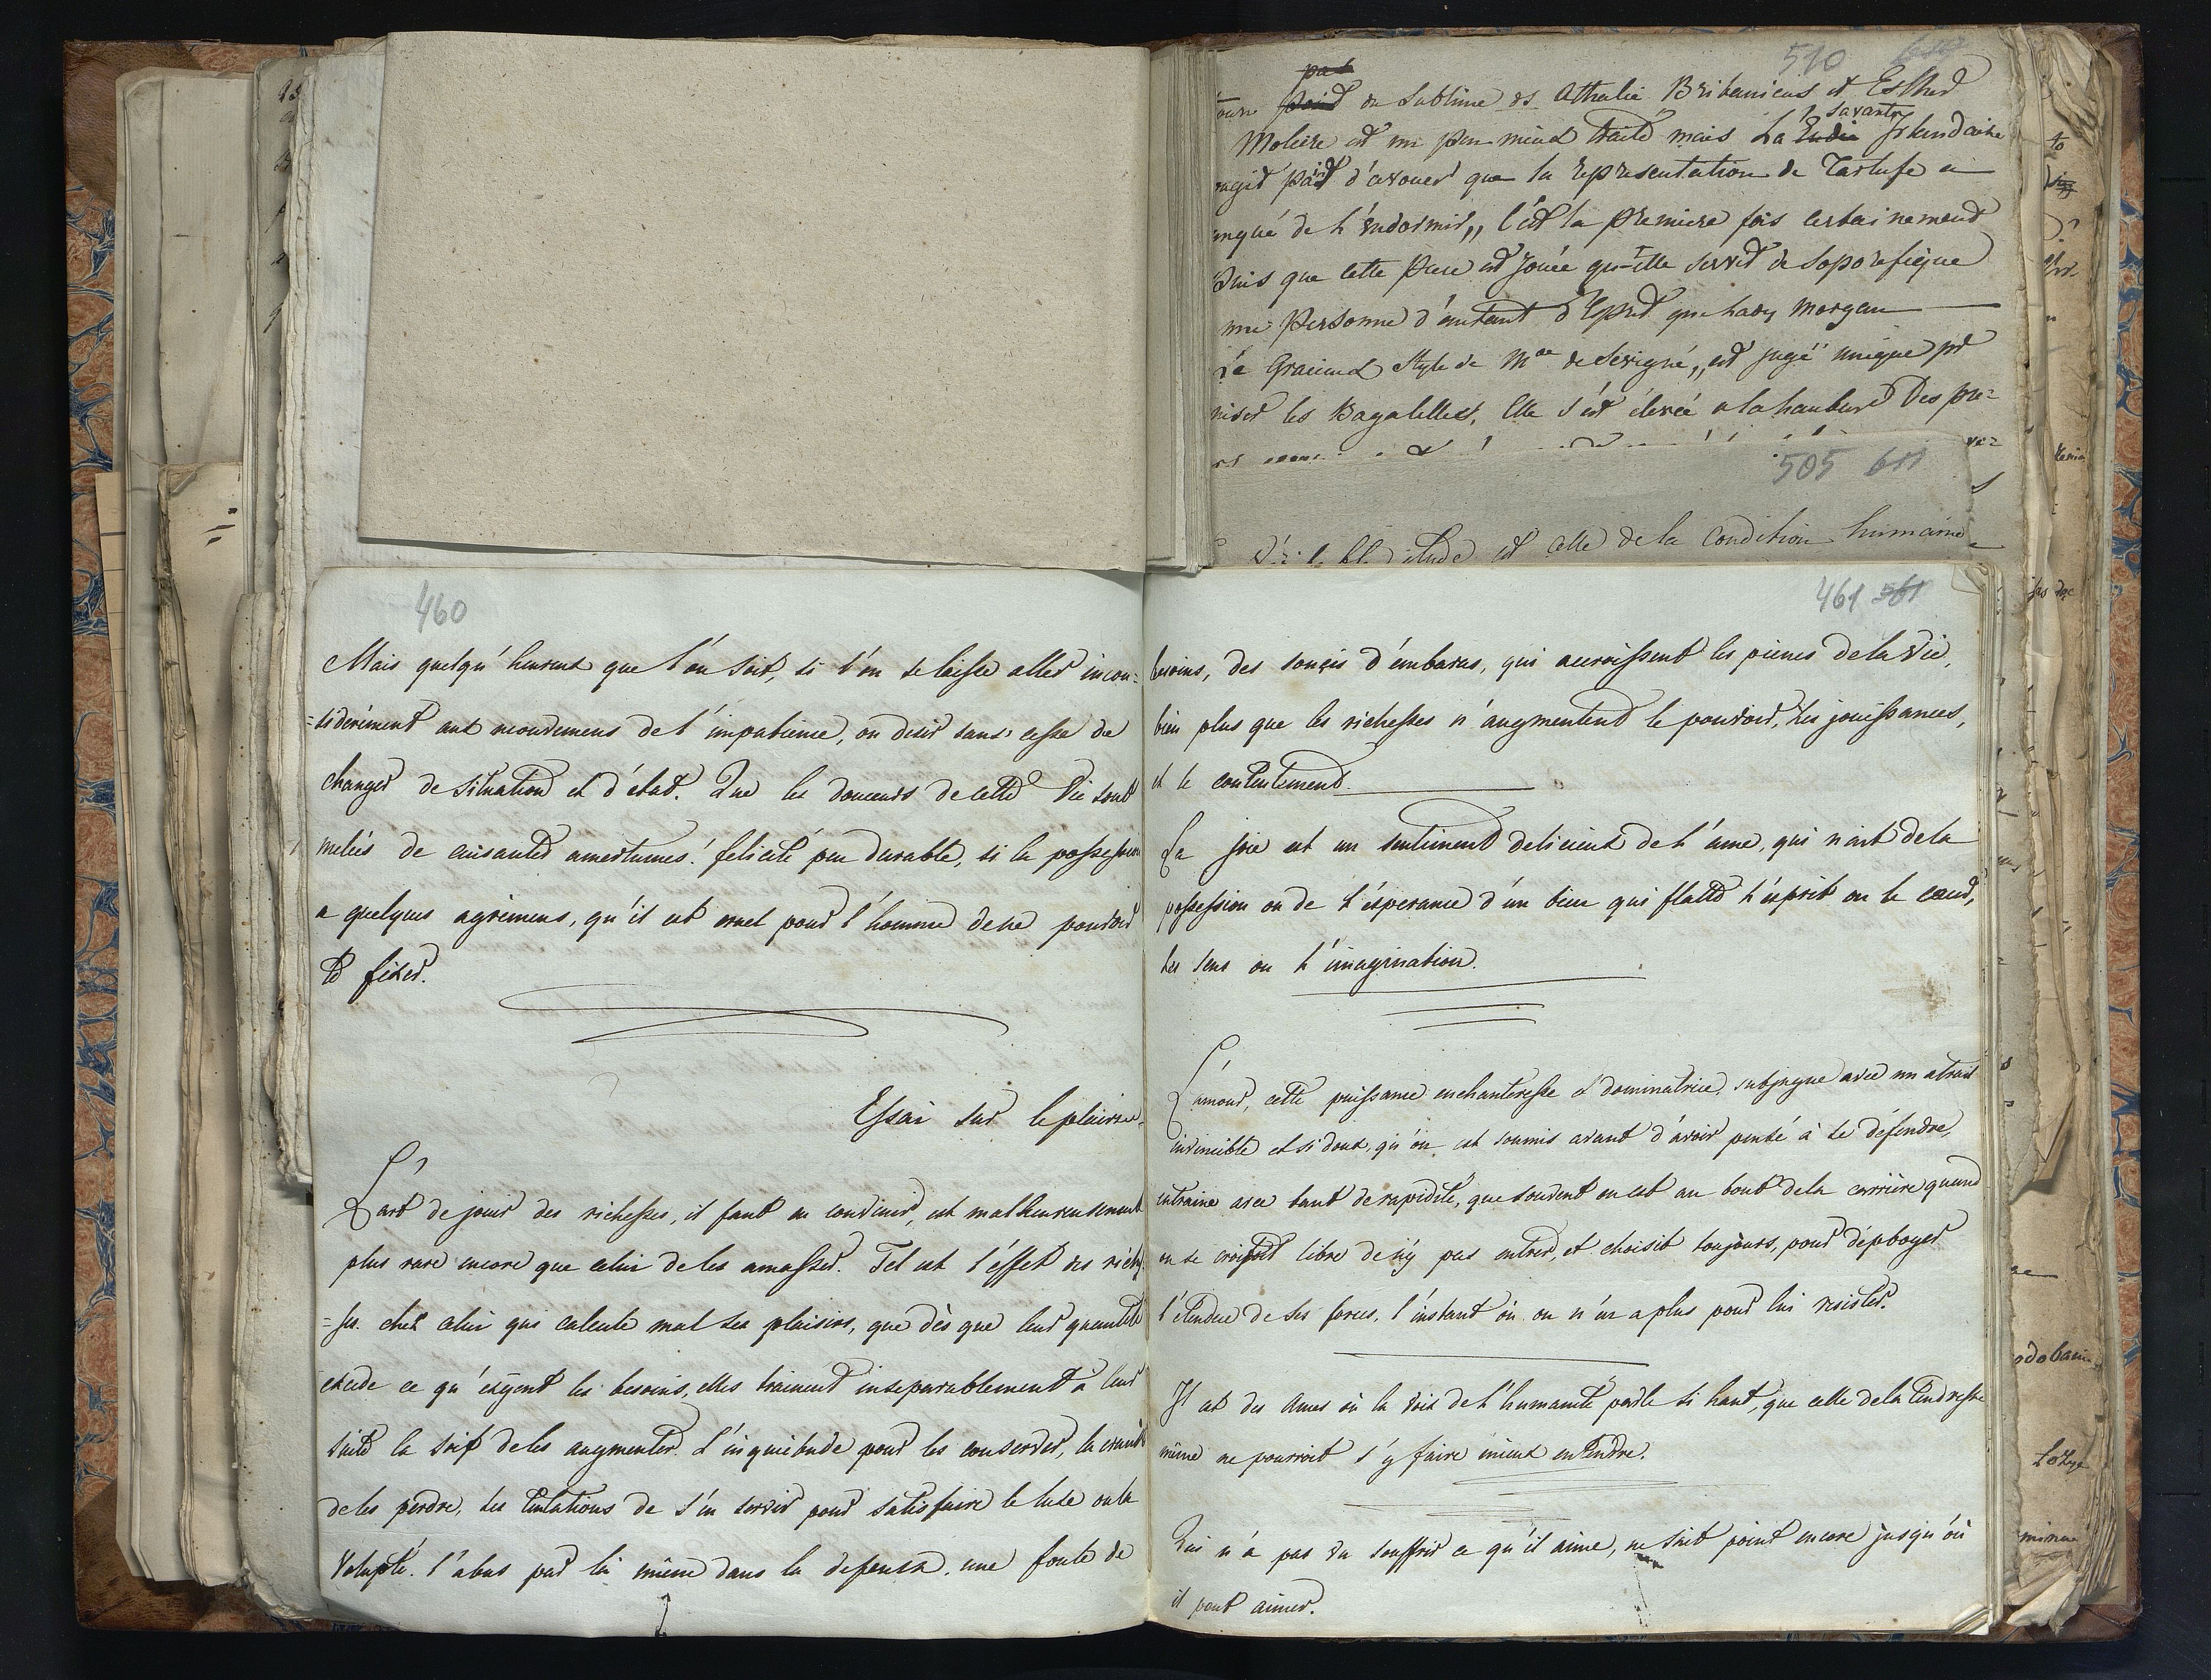 460
Mais quelqu'heureux que l'on soit, si l'on se laisse aller incon=
=siderément aux mouvemens de l'impatience, on desir sans cesse de
changer de situation et d'état. Que les douceurs de cette vie sont
melées de cuisantes amertumes! félicité peu durable, si la possession
a quelques agrémens, qu'il est cruel pour l'homme de ne pouvoir
te fixer.
Essai sur le plaisir.
L'art de jouir des richesses, il faut en convenir, est malheureusement
plus rare encore que celui de les amasser. Tel est l'éffet des riches
=ses chez celui qui calcule mal ses plaisirs, que dès que leur quantité
excede ce qu'exigent les besoins, elles trainent inseparablement à leur
suite la soif de les augmenter. L'inquietude pour les conserver, la crainte
de les perdre, les tentations de s'en servir pour satisfaire le luxe ou la
volupté. l'abus par lui même dans la depense, une foule de
510
pas
du sublime ds Athalie Britanicus et Esther
savante
Moliere est un peu mieux traité mais La Irlandaise
d'avouer que la representation de Tartufe a
de l'endormir,, c'est la premiere fois certainement
que cette piece est jouée qu'elle servit de soporifique
personne d'autant d'esprit que Lady Morgan
Le Gracieux style de Mme de Sévigné,, est jugé unique pr
les Bagatelles, Elle s'est élevée a la hauteur Des pre=
505 611
est celle de la condition humaine
461 561
besoins, des soucis d'embaras, qui accroissent les peines de la vie,
bien plus que les richesses n'augmentent le pouvoir, les jouissances,
et le contentement.
La joie est un sentiment delicieux de l'ame, qui nait de la
possession ou de l'ésperance d'un bien qui flatte l'ésprit ou le cœur,
les sens ou l'imagination.
L'amour, cette puissance enchanteresse et dominatrice, subjugue avec un atrait
invincible et si doux, qu'on est soumis avant d'avoir pensé à se défendre,
entraine avec tant de rapidité, que souvent on est au bout de la carrière quand
on se croyoit libre de n'y pas entrer, et choisit toujours, pour déployer
l'étendue de ses forces, l'instant où on n'en a plus pour lui resister.
Il est des Ames où la voix de l'humanité parle si haut, que celle de la tendresse
même ne pourroit s'y faire mieux entendre.
Qui n'a pas vu souffrir ce qu'il aime, ne sait point encore jusqu'où
il peut aimer.